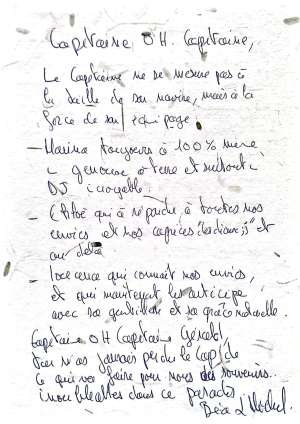 Capitaine OH. Capitaine,
Le Capitaine ne se mesure pas à
la taille de son navire, mais à la
force de son équipage
- Marina toujours à 100% même
à terre et surtout
DJ incroyable.
- Chloé qui a répondu, à toutes nos
envies et nos caprices et
au delà
- qui connait nos envies,
et qui maintenant les anticipe
avec sa gentillesse et sa grâce naturelle.
Capitaine OH Capitaine Gérald,
Tu n'as jamais perdu le Cap de
ce que faire pour nous des souvenirs
inoubliables dans ce paradis
Béa